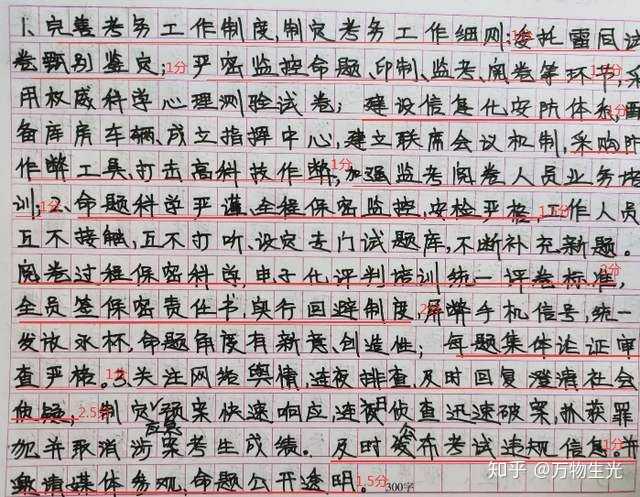 1、完善考务工作制度,制定考务工作细则;委托雷同试
卷甄别鉴定;1分 严密监控命题、印制、监考、阅卷等环节,1分采
用权威科学心理测验试卷; 建设信息化安防体系,1分配
备库房车辆、成立指挥中心,建立联席会议机制,采购防
作弊工具、打击高科技作弊;1分加强监考阅卷人员业务培
训;1分2、命题科学严谨,全程保密监控,安检严格,1分工作人员
互不接触,互不打听、设定专门试题库,不断补充新题。
阅卷过程保密科学,电子化评判培训统一评卷标准,
全员签保密责任书,实行回避制度,2分屏弊手机信号,统一
发放水杯,命题角度有新意、创造性; 每题集体论证审
查严格。1分3、关注网络舆情,连夜排查,及时回复澄清社会
质疑,2.5分 制定预案快速响应,连夜侦查迅速破案,抓获罪
犯并取消涉案考生成绩。及时发布考试违规信息。1分开
邀请媒体参观,命题公开透明。1.5分 300字
知乎 @万物生光